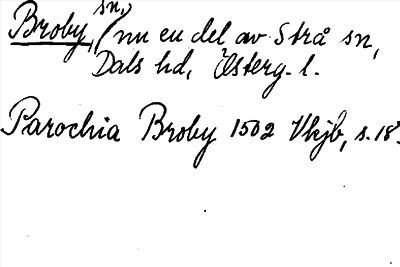 Broby, sn, (nu en del av Strå sn,
Dals hd, Österg. l.
Parochia Broby 1502 Vkjb, s. 18.